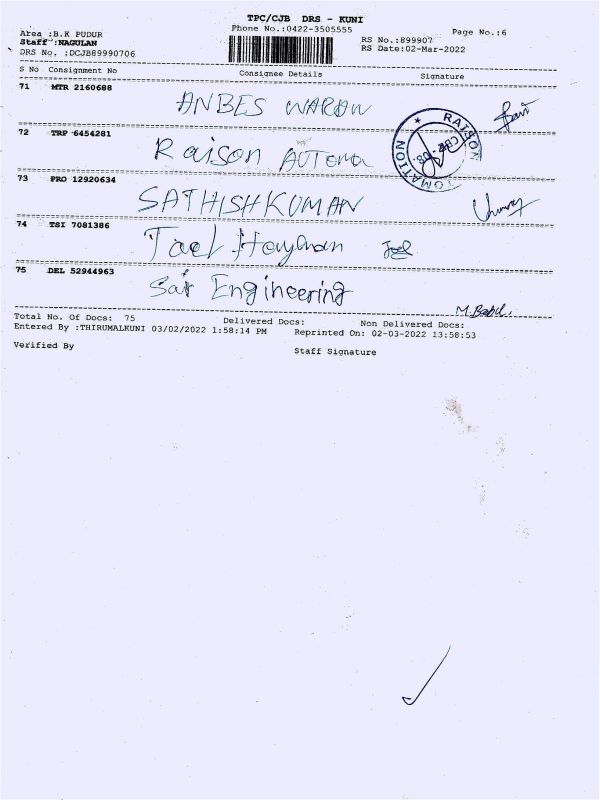 TPC/CJB DRS - KUNI
Area :B.K PUDUR
Phone No.:0422-3505555
Page No.:6
Staff :NAGULAN
RS No.:899907
DRS No. :DCJB89990706
RS Date:02-Mar-2022
S No Consignment No Consignee Details Signature
71 MTR 2160688
ANBES WARAN
72 TRP 6454281
Raison AUTOMA
RAISON
AUTOMATION
CBE - 08
73 PRO 12920634
SATHISH KUMAR
74 TSI 7081386
Joel
75 DEL 52944963
Sai Engineering
M. Babu.
Total No. Of Docs: 75 Delivered Docs: Non Delivered Docs:
Entered By :THIRUMALKUNI 03/02/2022 1:58:14 PM Reprinted On: 02-03-2022 13:58:53
Verified By Staff Signature